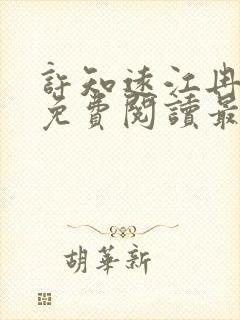 許知遠江冉
免費閱讀最
胡華新